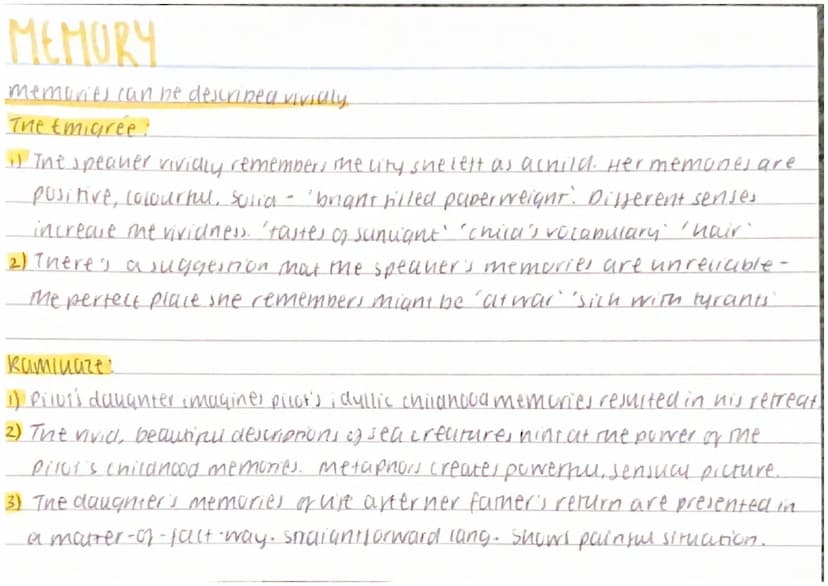 MEMORY
memories can be described vividly
The Emigrée:
1) The speaker vividly remembers the city she left as a child. Her memories are
positive, colourful, solid - 'bright filled paperweight'. Different senses
increase the vividness. 'tastes of sunlight' 'child's vocabulary' 'hair'
2) There's a suggestion that the speaker's memories are unreliable -
the perfect place she remembers might be 'at war' 'sick with tyrants'
Kamikaze:
1) Pilot's daughter imagines pilot's idyllic childhood memories resulted in his retreat
2) The vivid, beautiful descriptions of sea creatures hint at the power of the
pilot's childhood memories. Metaphors creates powerful, sensual picture.
3) The daughter's memories of life after her father's return are presented in
a matter-of-fact-way. straightforward lang. Shows painful situation.